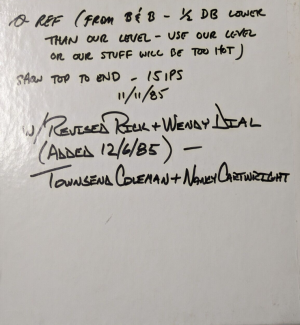 0 REF (FROM B&B - ½ DB LOWER
THAN OUR LEVEL - USE OUR LEVEL
OR OUR STUFF WILL BE TOO HOT)
TOP TO END - 15 IPS
11/11/85
W/REVISED RICK + WENDY DIAL
(ADDED 12/6/85) —
TOWNSEND COLEMAN + NANCY CARTWRIGHT